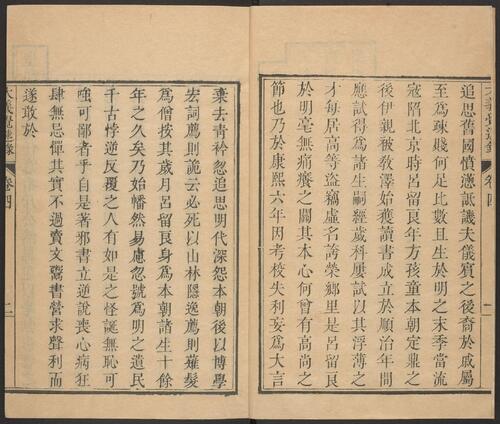 追思舊國憤懣詆譏夫儀賓之後裔於戚屬
至為疎賤何足比數且生於明之末季當流
寇陷北京時呂留良年方孩童本朝定鼎之
後伊親被教澤始獲讀書成立於順治年間
應試得為諸生嗣經歲科屢試以其浮薄之
才每居高等盜竊虛名誇榮鄉里是呂留良
於明毫無痛癢之關其本心何曾有高尚之
節也乃於康熙六年因考校失利妄為大言
棄去青衿忽追思明代深怨本朝後以博學
宏詞薦則詭云必死以山林隱逸薦則薙髮
為僧按其歲月呂留良身為本朝諸生十餘
年之久矣乃始幡然易慮忽號為明之遺民
千古悖逆反覆之人有如是之怪誕無恥可
嗤可鄙者乎自是著邪書立逆說喪心病狂
肆無忌憚其實不過賣文鬻書營求聲利而
遂敢於
大義覺迷錄 卷四 二